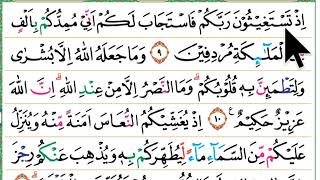 اِذْ تَسْتَغِیْثُوْنَ رَبَّكُمْ فَاسْتَجَابَ لَكُمْ اَنِّیْ مُمِدُّكُمْ بِاَلْفٍ
الْمَلٰٓىِٕكَةِ مُرْدِفِیْنَ ۹ وَمَا جَعَلَهُ اللّٰهُ اِلَّا بُشْرٰی
وَلِتَطْمَىِٕنَّ بِهٖ قُلُوْبُكُمْ ۚ وَمَا النَّصْرُ اِلَّا مِنْ عِنْدِ اللّٰهِ ؕ اِنَّ اللّٰهَ
عَزِیْزٌ حَكِیْمٌ ۱۰ اِذْ یُغَشِّیْكُمُ النُّعَاسَ اَمَنَةً مِّنْهُ وَیُنَزِّلُ
عَلَیْكُمْ مِّنَ السَّمَآءِ مَآءً لِّیُطَهِّرَكُمْ بِهٖ وَیُذْهِبَ عَنْكُمْ رِجْزَ